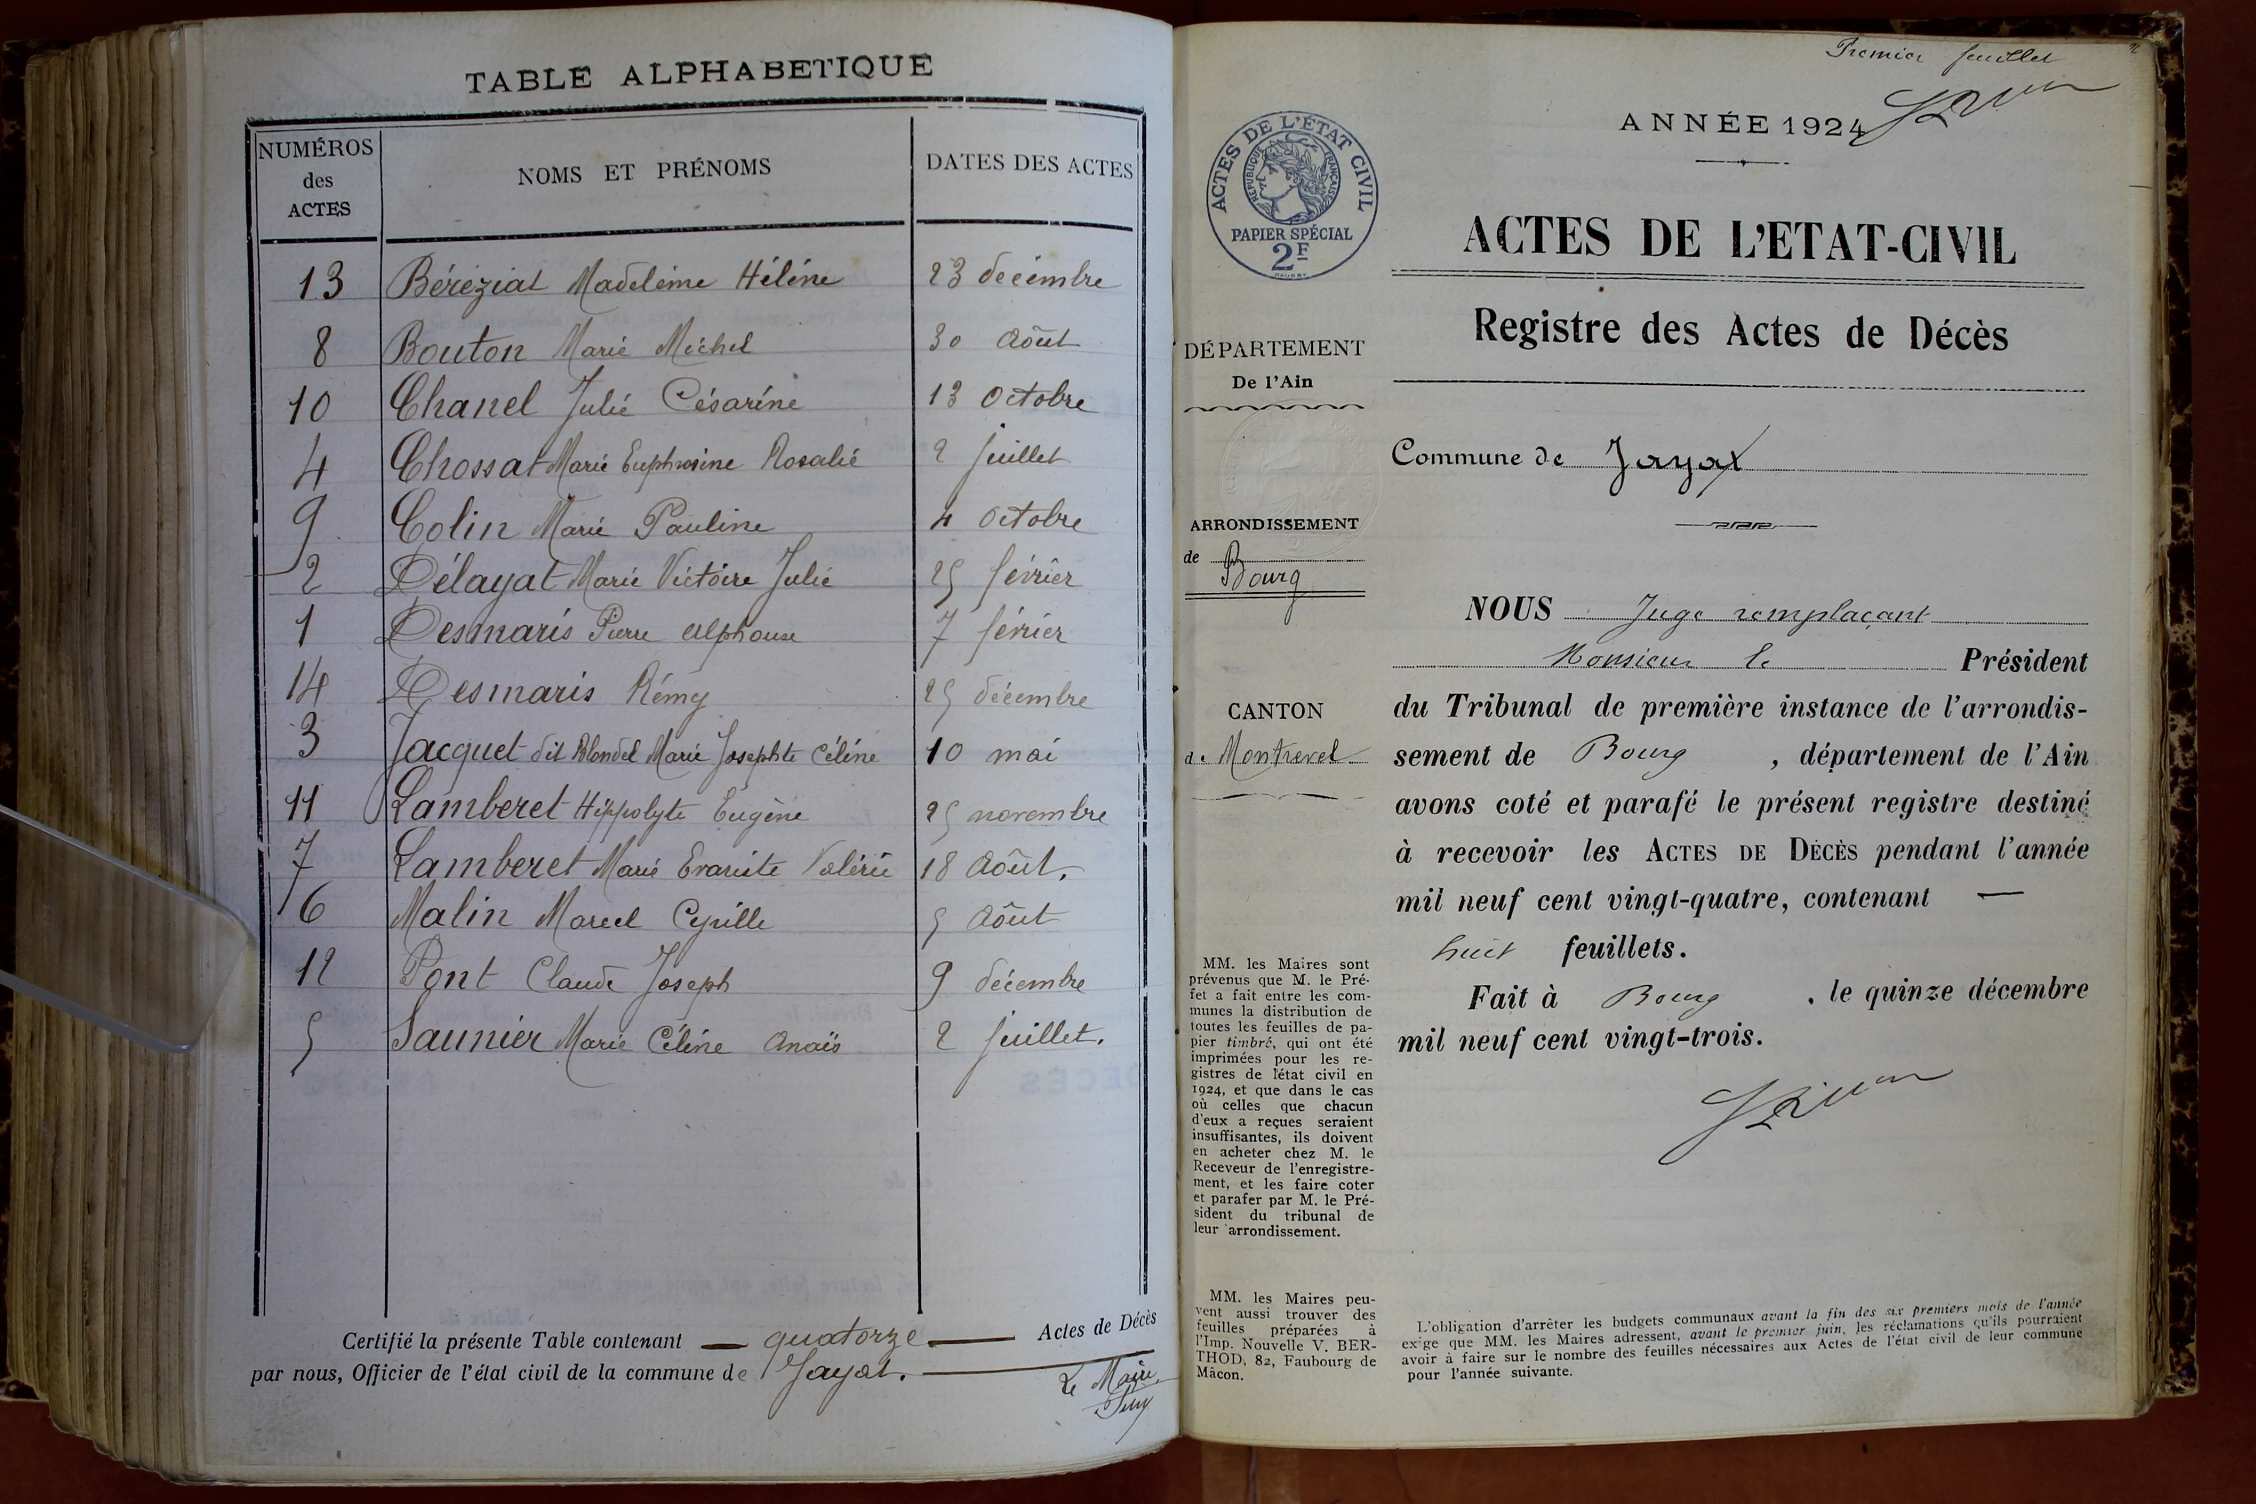 TABLE ALPHABETIQUE
NUMÉROS des ACTES | NOMS ET PRÉNOMS | DATES DES ACTES
13 Béréziat Madeleine Hélène 23 décembre
8 Bouton Marie Michel 30 Août
10 Chanel Julie Césarine 13 Octobre
4 Chossat Marie Euphrosine Rosalie 2 juillet
9 Colin Marie Pauline 4 Octobre
2 Délayat Marie Victoire Julie 25 février
1 Desmaris Pierre Alphonse 7 février
14 Desmaris Rémy 25 décembre
3 Jacquet dit Blondel Marie Josephte Céline 10 mai
11 Lamberet Hippolyte Eugène 25 novembre
7 Lamberet Marie Evariste Valérie 18 Août.
6 Malin Marcel Cyrille 5 Août
12 Pont Claude Joseph 9 décembre
5 Saunier Marie Céline Anaïs 2 juillet.
Certifié la présente Table contenant — quatorze — Actes de Décès
par nous, Officier de l'état civil de la commune de Jayat.
Le Maire
Premier feuillet
ANNÉE 1924
ACTES DE L'ÉTAT CIVIL
RÉPUBLIQUE FRANÇAISE
PAPIER SPÉCIAL
2F
ACTES DE L'ETAT-CIVIL
Registre des Actes de Décès
DÉPARTEMENT
De l'Ain
Commune de Jayat
ARRONDISSEMENT
de Bourg
CANTON
de Montrevel
NOUS Juge remplaçant
Monsieur le Président
du Tribunal de première instance de l'arrondis-
sement de Bourg, département de l'Ain
avons coté et parafé le présent registre destiné
à recevoir les ACTES DE DÉCÈS pendant l'année
mil neuf cent vingt-quatre, contenant —
huit feuillets.
Fait à Bourg, le quinze décembre
mil neuf cent vingt-trois.
MM. les Maires sont
prévenus que M. le Pré-
fet a fait entre les com-
munes la distribution de
toutes les feuilles de pa-
pier timbré, qui ont été
imprimées pour les re-
gistres de l'état civil en
1924, et que dans le cas
où celles que chacun
d'eux a reçues seraient
insuffisantes, ils doivent
en acheter chez M. le
Receveur de l'enregistre-
ment, et les faire coter
et parafer par M. le Pré-
sident du tribunal de
leur arrondissement.
MM. les Maires peu-
vent aussi trouver des
feuilles préparées à
l'Imp. Nouvelle V. BER-
THOD, 82, Faubourg de
Mâcon.
L'obligation d'arrêter les budgets communaux avant la fin des six premiers mois de l'année
exige que MM. les Maires adressent, avant le premier juin, les réclamations qu'ils pourraient
avoir à faire sur le nombre des feuilles nécessaires aux Actes de l'état civil de leur commune
pour l'année suivante.